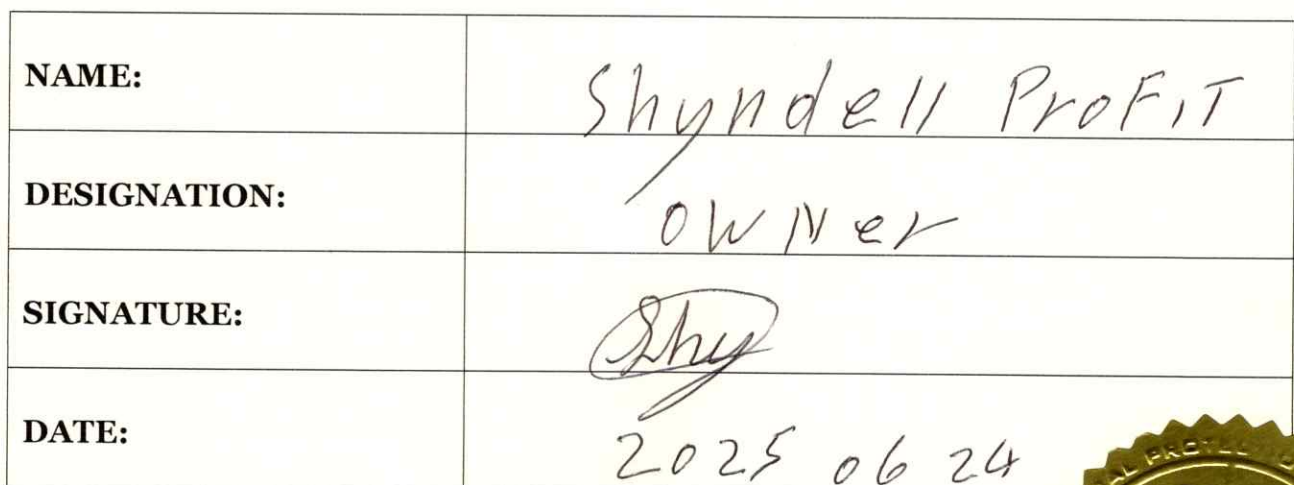 NAME: Shyndell ProFiT
DESIGNATION: OWNer
SIGNATURE: Shy
DATE: 2025 06 24